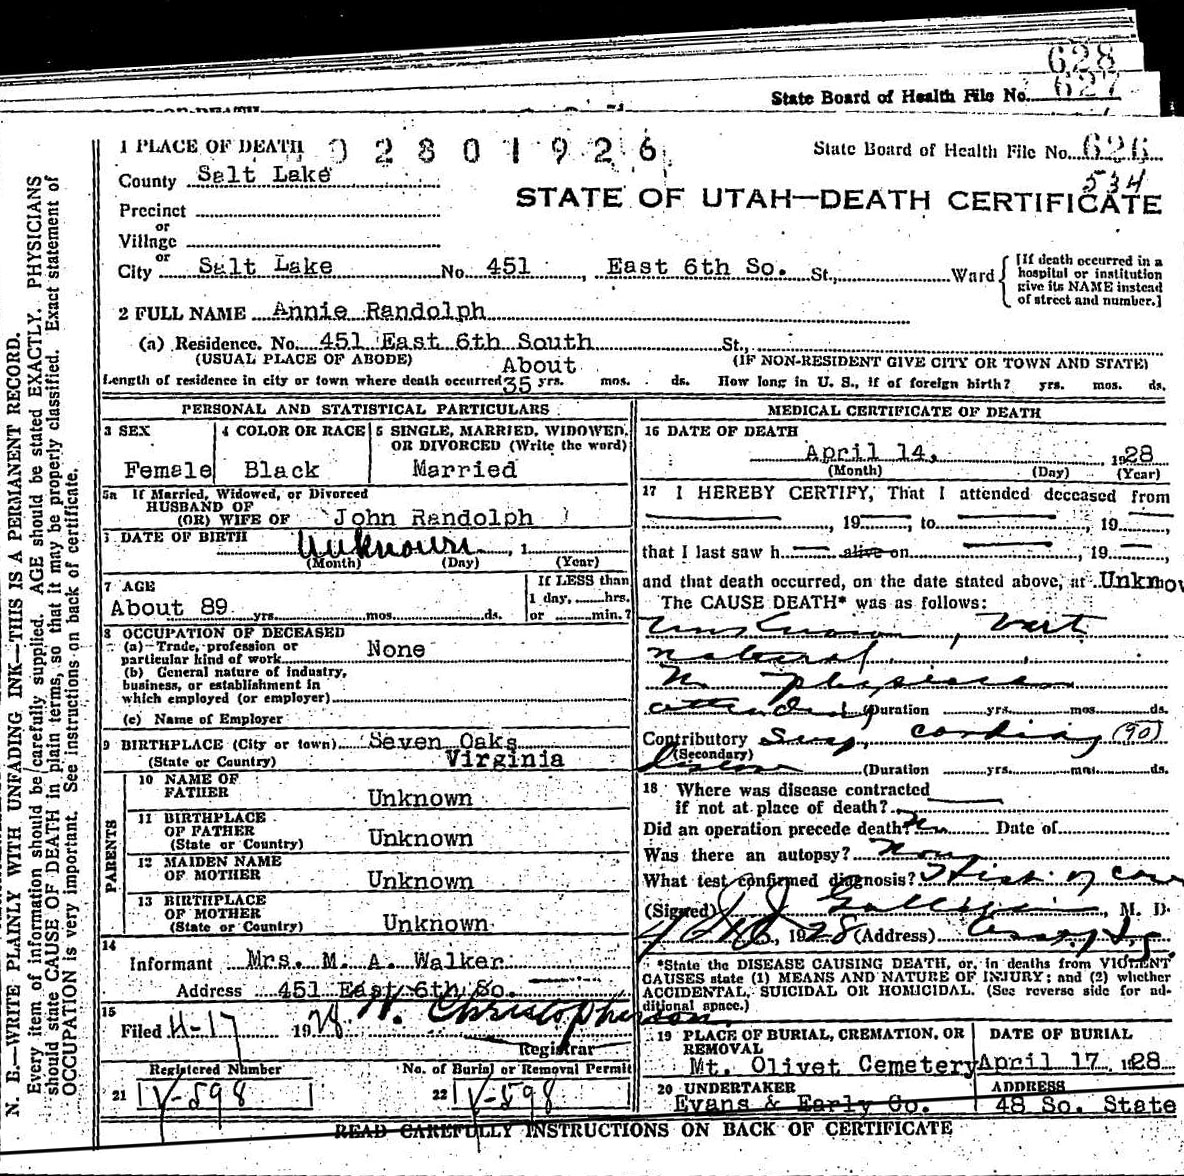 628
State Board of Health File No. 627
1 PLACE OF DEATH 02801926 State Board of Health File No. 626
534
County Salt Lake
STATE OF UTAH—DEATH CERTIFICATE
Precinct
or
Village
or
City Salt Lake No. 451, East 6th So. St., Ward
[If death occurred in a
hospital or institution
give its NAME instead
of street and number.]
2 FULL NAME Annie Randolph
(a) Residence. No. 451 East 6th South St.,
(USUAL PLACE OF ABODE) (IF NON-RESIDENT GIVE CITY OR TOWN AND STATE)
About
Length of residence in city or town where death occurred 35 yrs. mos. ds. How long in U. S., if of foreign birth? yrs. mos. ds.
PERSONAL AND STATISTICAL PARTICULARS
3 SEX
Female
4 COLOR OR RACE
Black
5 SINGLE, MARRIED, WIDOWED,
OR DIVORCED (Write the word)
Married
5a If Married, Widowed, or Divorced
HUSBAND OF
(OR) WIFE OF John Randolph
6 DATE OF BIRTH
Unknown, 1
(Month) (Day) (Year)
7 AGE
About 89 yrs. mos. ds.
If LESS than
1 day, hrs.
or min.?
8 OCCUPATION OF DECEASED
(a) Trade, profession or
particular kind of work None
(b) General nature of industry,
business, or establishment in
which employed (or employer)
(c) Name of Employer
9 BIRTHPLACE (City or town) Seven Oaks
(State or Country) Virginia
PARENTS
10 NAME OF
FATHER
Unknown
11 BIRTHPLACE
OF FATHER
(State or Country)
Unknown
12 MAIDEN NAME
OF MOTHER
Unknown
13 BIRTHPLACE
OF MOTHER
(State or Country)
Unknown
14
Informant Mrs. M. A. Walker
Address 451 East 6th So.
15
Filed 4-17 1928 W. Christopherson
Registrar
Registered Number No. of Burial or Removal Permit
21 V-598 22 V-598
MEDICAL CERTIFICATE OF DEATH
16 DATE OF DEATH
April 14, 1928
(Month) (Day) (Year)
17 I HEREBY CERTIFY, That I attended deceased from
, 19 ; to , 19 ,
that I last saw h alive on , 19 ,
and that death occurred, on the date stated above, at Unknow
The CAUSE DEATH* was as follows:
Unknown,
natural
No physician
attended (Duration yrs. mos. ds.
Contributory (90)
(Secondary)
(Duration yrs. mos. ds.
18 Where was disease contracted
if not at place of death?
Did an operation precede death? No Date of
Was there an autopsy?
What test confirmed diagnosis? Hist. of case
(Signed) , M. D.
, 1928 (Address)
*State the DISEASE CAUSING DEATH, or, in deaths from VIOLENT
CAUSES state (1) MEANS AND NATURE OF INJURY; and (2) whether
ACCIDENTAL, SUICIDAL OR HOMICIDAL. (See reverse side for ad-
ditional space.)
19 PLACE OF BURIAL, CREMATION, OR
REMOVAL
Mt. Olivet Cemetery
DATE OF BURIAL
April 17 1928
20 UNDERTAKER
Evans & Early Co.
ADDRESS
48 So. State
READ CAREFULLY INSTRUCTIONS ON BACK OF CERTIFICATE
N. B.—WRITE PLAINLY WITH UNFADING INK—THIS IS A PERMANENT RECORD.
Every item of information should be carefully supplied. AGE should be stated EXACTLY. PHYSICIANS
should state CAUSE OF DEATH in plain terms, so that it may be properly classified. Exact statement of
OCCUPATION is very important. See instructions on back of certificate.